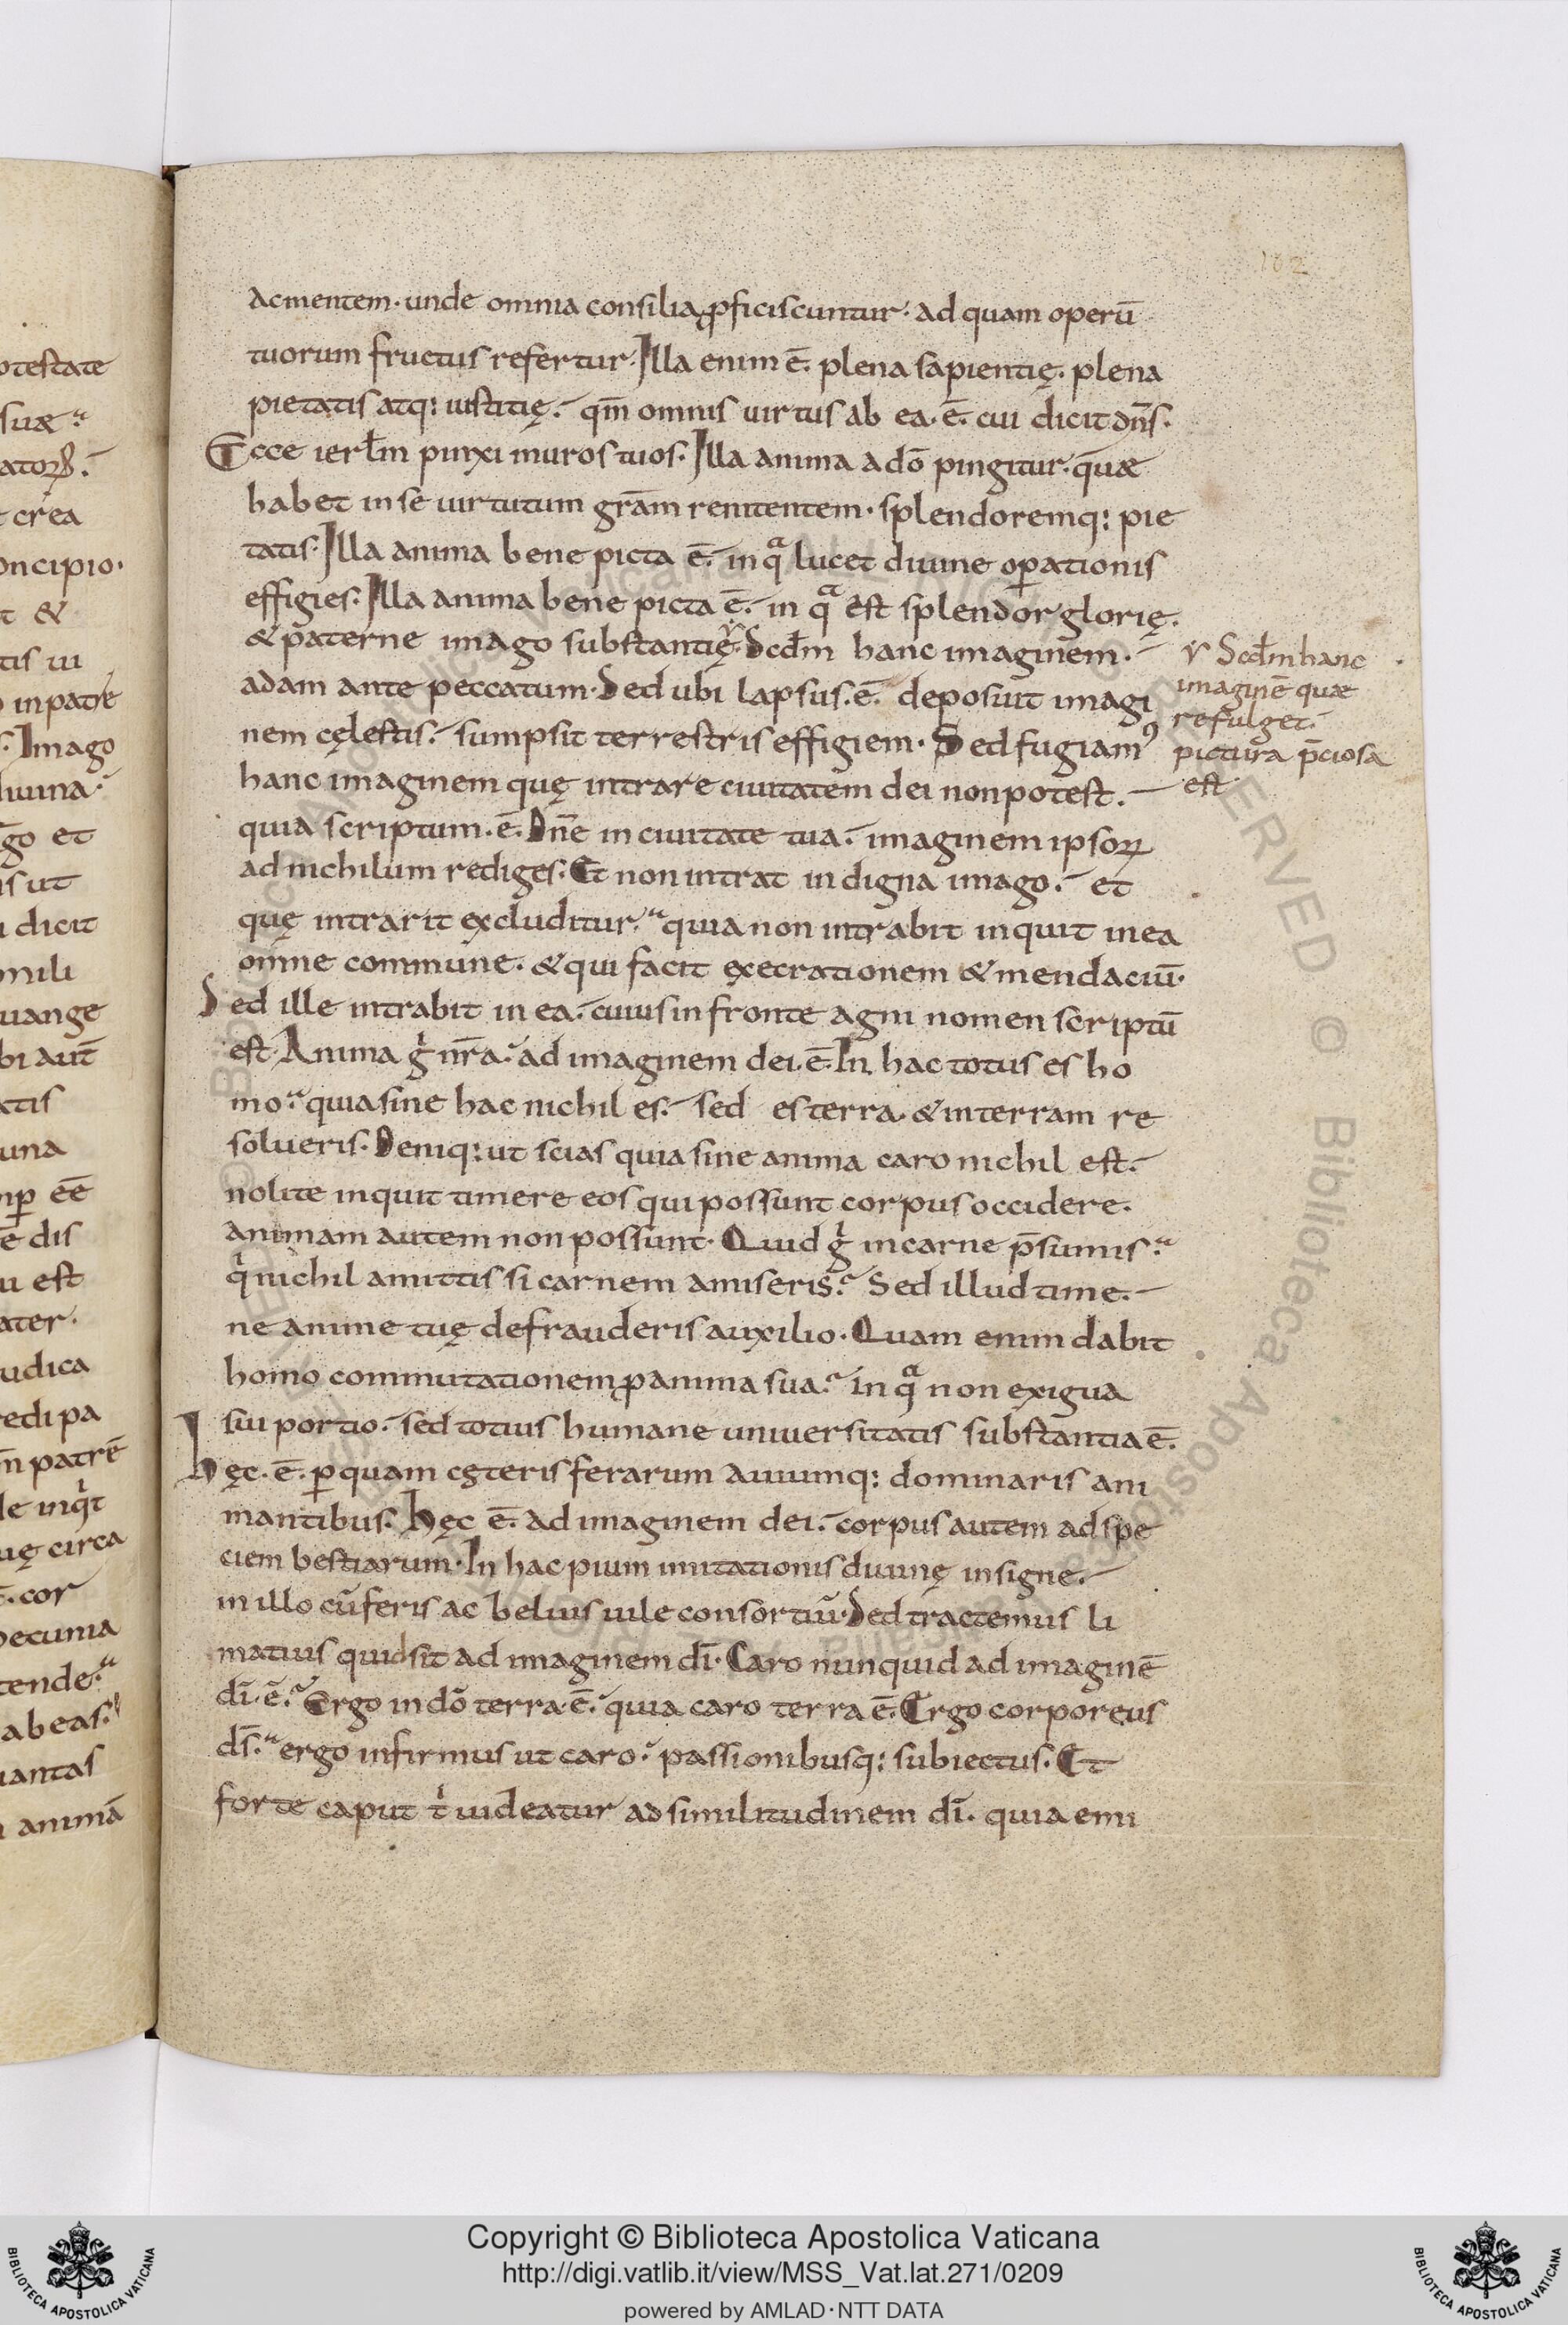 otestate
suæ
atoꝝ.
t crea
oncipio.
t &
tis ui
o in patre
s. Imago
diuina.
go et
is ut
u dicit
mili
uange
bi aut̄
atis
una
mꝑ eē
e dis
u est
ater.
udica
redi pa
m̄ patrē
le inqͥt
uę circa
ē. cor
pecunia
tende.
abeas.
uantas
animā
ac mentem. unde omnia consilia ꝓficiscuntur. ad quam operū
tuorum fructus refertur. Illa enim ē. plena sapientię. plena
pietatis atq: iustitię. qm̄ omnis uirtus ab ea. ē. cui dicit dn̄s.
Ecce ierl̄m pinxi muros tuos. Illa anima a dō pingitur. quæ
habet in se uirtutum grām renitentem. splendoremq: pie
tatis. Illa anima bene picta ē. in qᵃ lucet diuine oꝑationis
effigies. Illa anima bene picta ē. in qᵃ est splendor glorię.
& paterne imago substantię. Scd̄m hanc imaginem.
adam ante peccatum. Sed ubi lapsus. ē. deposuit imagi
nem cęlestis. sumpsit terrestris effigiem. Sed fugiamꝰ
hanc imaginem quę intrare ciuitatem dei non potest.
quia scriptum. ē. Dn̄e in ciuitate tua. imaginem ipsoꝝ
ad nichilum rediges. Et non intrat indigna imago. et
quę intrarit excluditur. quia non intrabit inquit in ea
omne commune. & qui facit execrationem & mendaciū.
Sed ille intrabit in ea. cuius in fronte agni nomen scriptū
est. Anima gͥ nr̄a. ad imaginem dei. ē. In hac totus es ho
mo. quia sine hac nichil es. sed es terra. & in terram re
solueris. Deniq: ut scias quia sine anima caro nichil est.
nolite inquit timere eos qui possunt corpus occidere.
animam autem non possunt. Quid gͥ in carne p̄sumis.
qͥ nichil amittis si carnem amiseris. Sed illud time.
ne anime tuę defrauderis auxilio. Quam enim dabit
homo commutationem ꝓ anima sua. in qᵃ non exigua
sui portio. sed totius humane uniuersitatis substantia ē.
Hęc. ē. ꝑ quam cęteris ferarum auiumq: dominaris ani
mantibus. Hęc ē. ad imaginem dei. corpus autem ad spe
ciem bestiarum. In hac pium imitationis diuinę insigne.
in illo cū feris ac beluis uile consortiū. Sed tractemus li
matius quid sit ad imaginem dī. Caro nunquid ad imaginē
dī. ē. Ergo in dō terra. ē. quia caro terra ē. Ergo corporeus
ds̄. ergo infirmus ut caro. passionibusq: subiectus. Et
forte caput tͥ uideatur ad similitudinem dī. quia emi
Scd̄m hanc
imaginē quæ
refulget.
pictura p̄ciosa
est
Copyright © Biblioteca Apostolica Vaticana
http://digi.vatlib.it/view/MSS_Vat.lat.271/0209
powered by AMLAD·NTT DATA
BIBLIOTECA APOSTOLICA VATICANA
BIBLIOTECA APOSTOLICA VATICANA